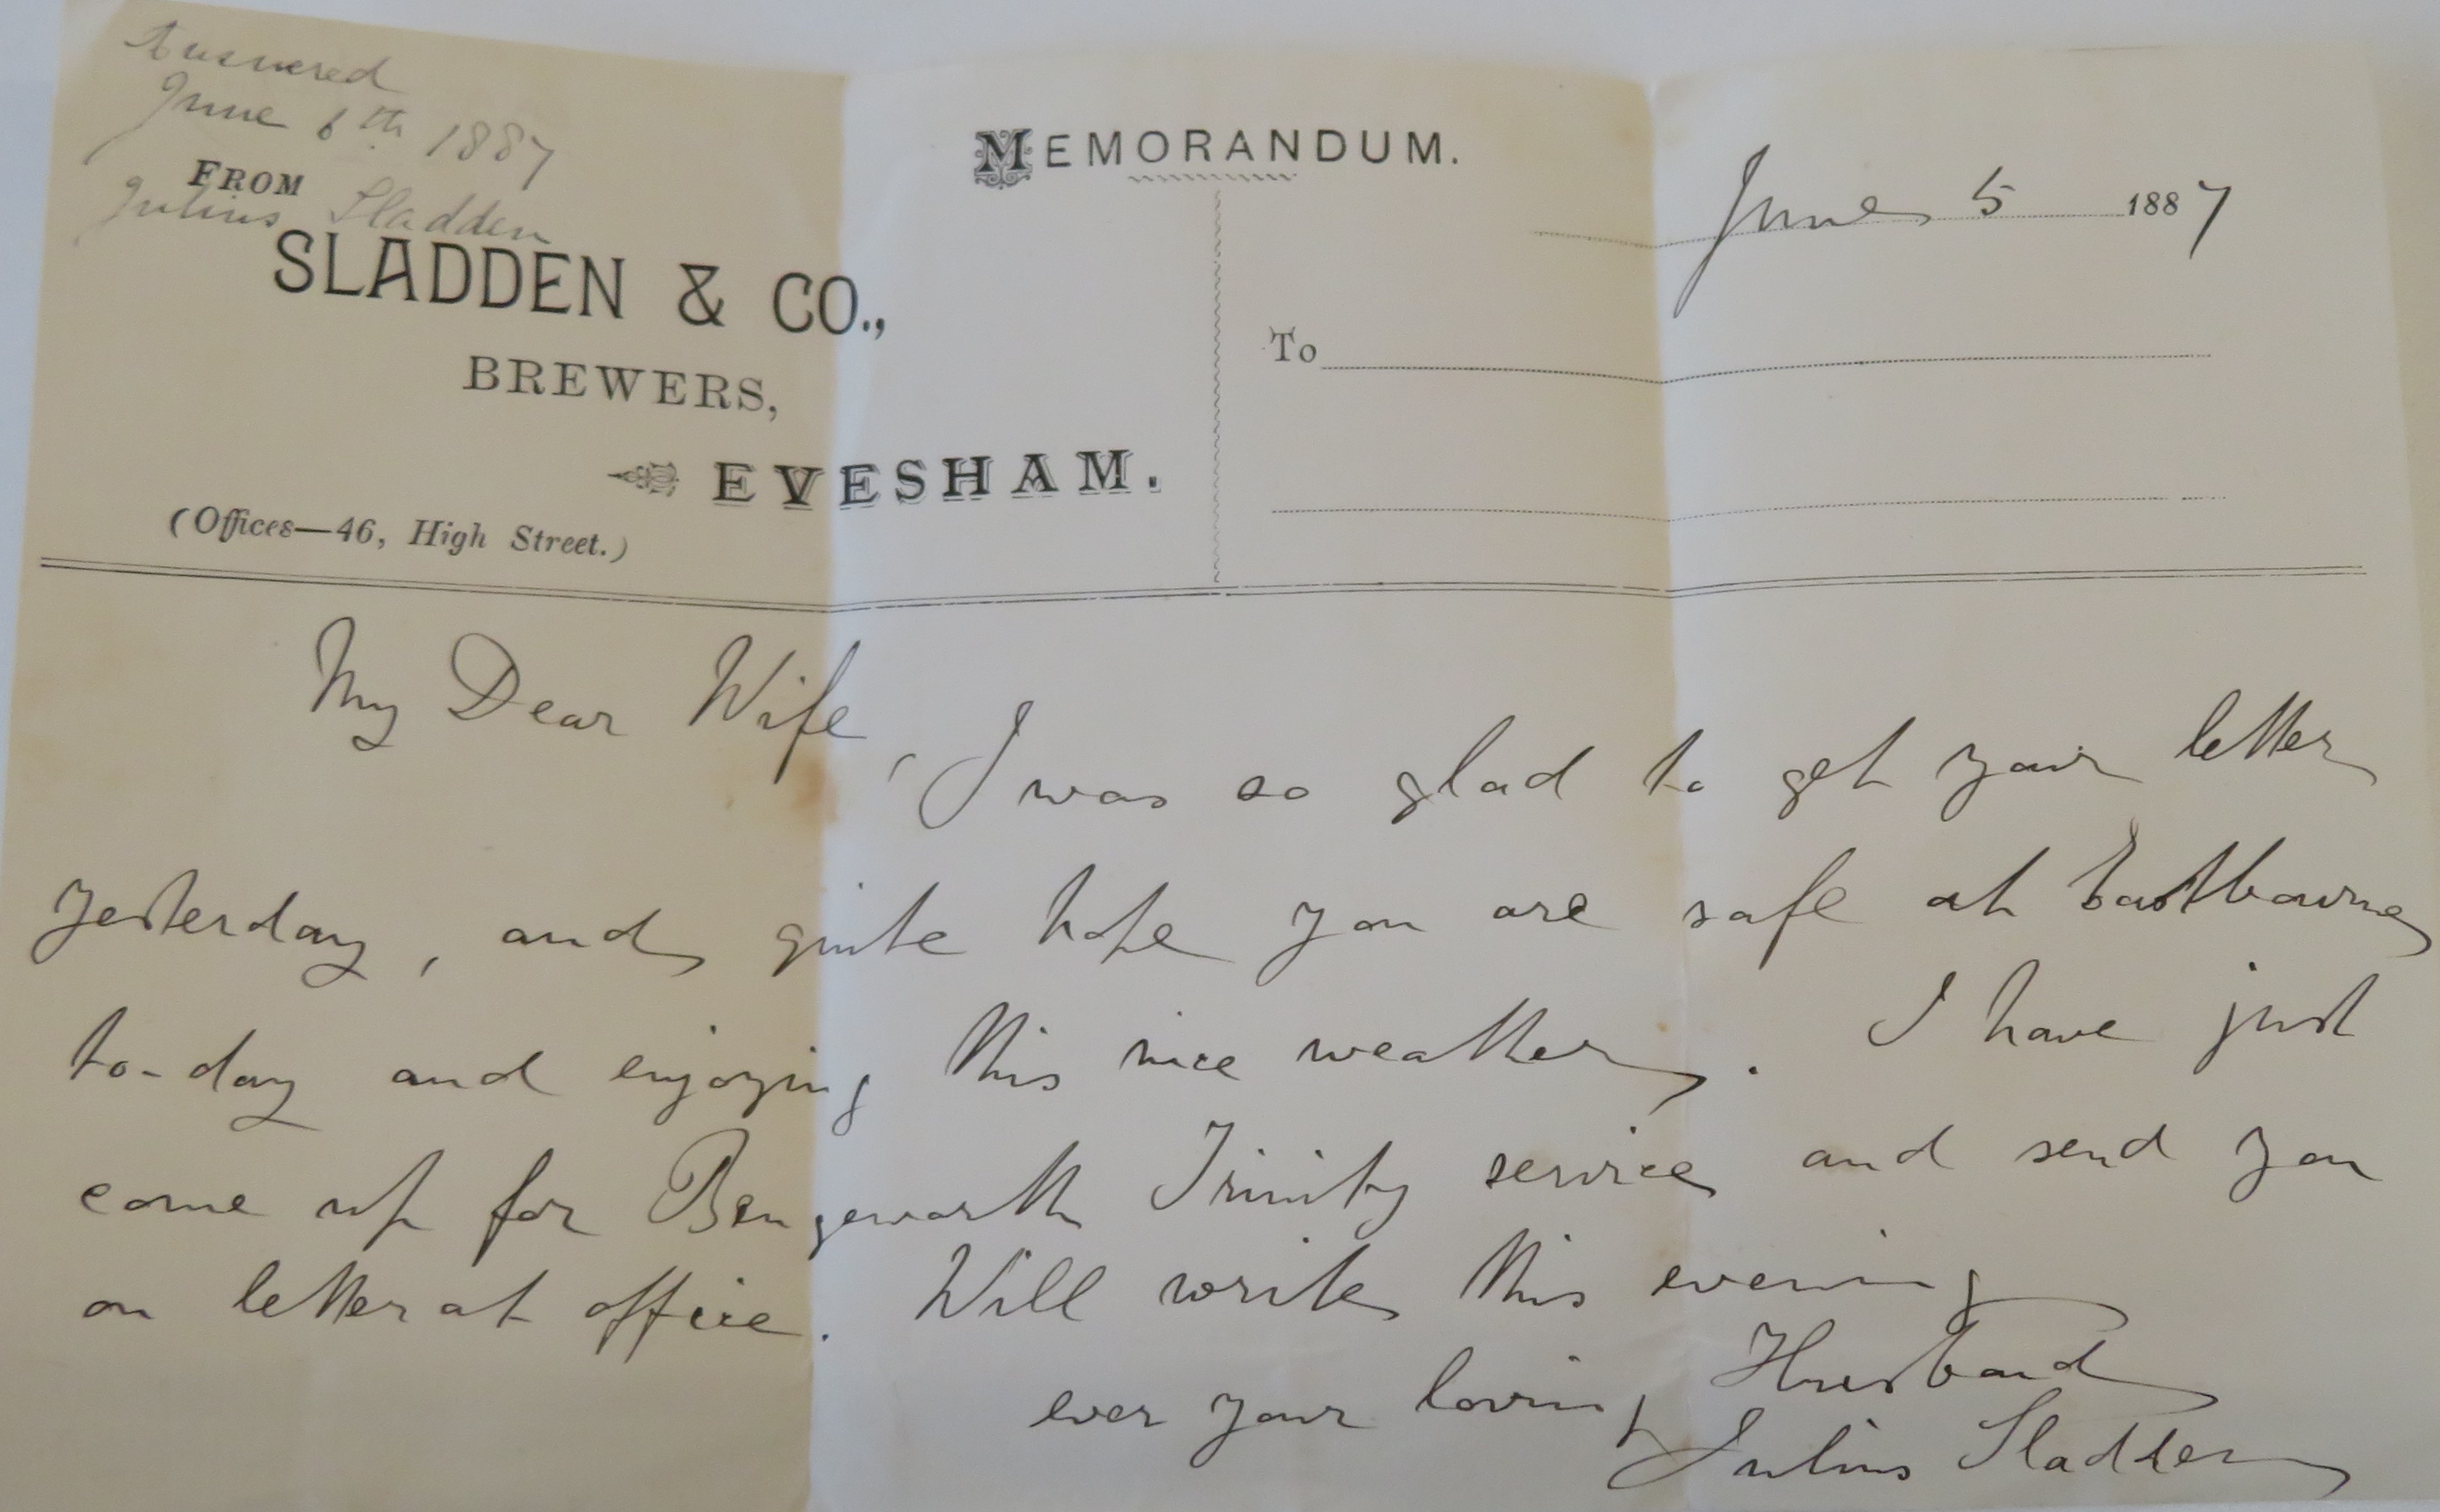 Answered
June 6th 1887
FROM
Julius Sladden
SLADDEN & CO.,
BREWERS,
EVESHAM.
(Offices—46, High Street.)
MEMORANDUM.
June 5 1887
To
My Dear Wife,
I was so glad to get your letter
yesterday, and quite hope you are safe at Eastbourne
to-day and enjoying this nice weather. I have just
come up for Bengeworth Trinity service and send you
on letter at office. Will write this evening
ever your loving Husband
Julius Sladden